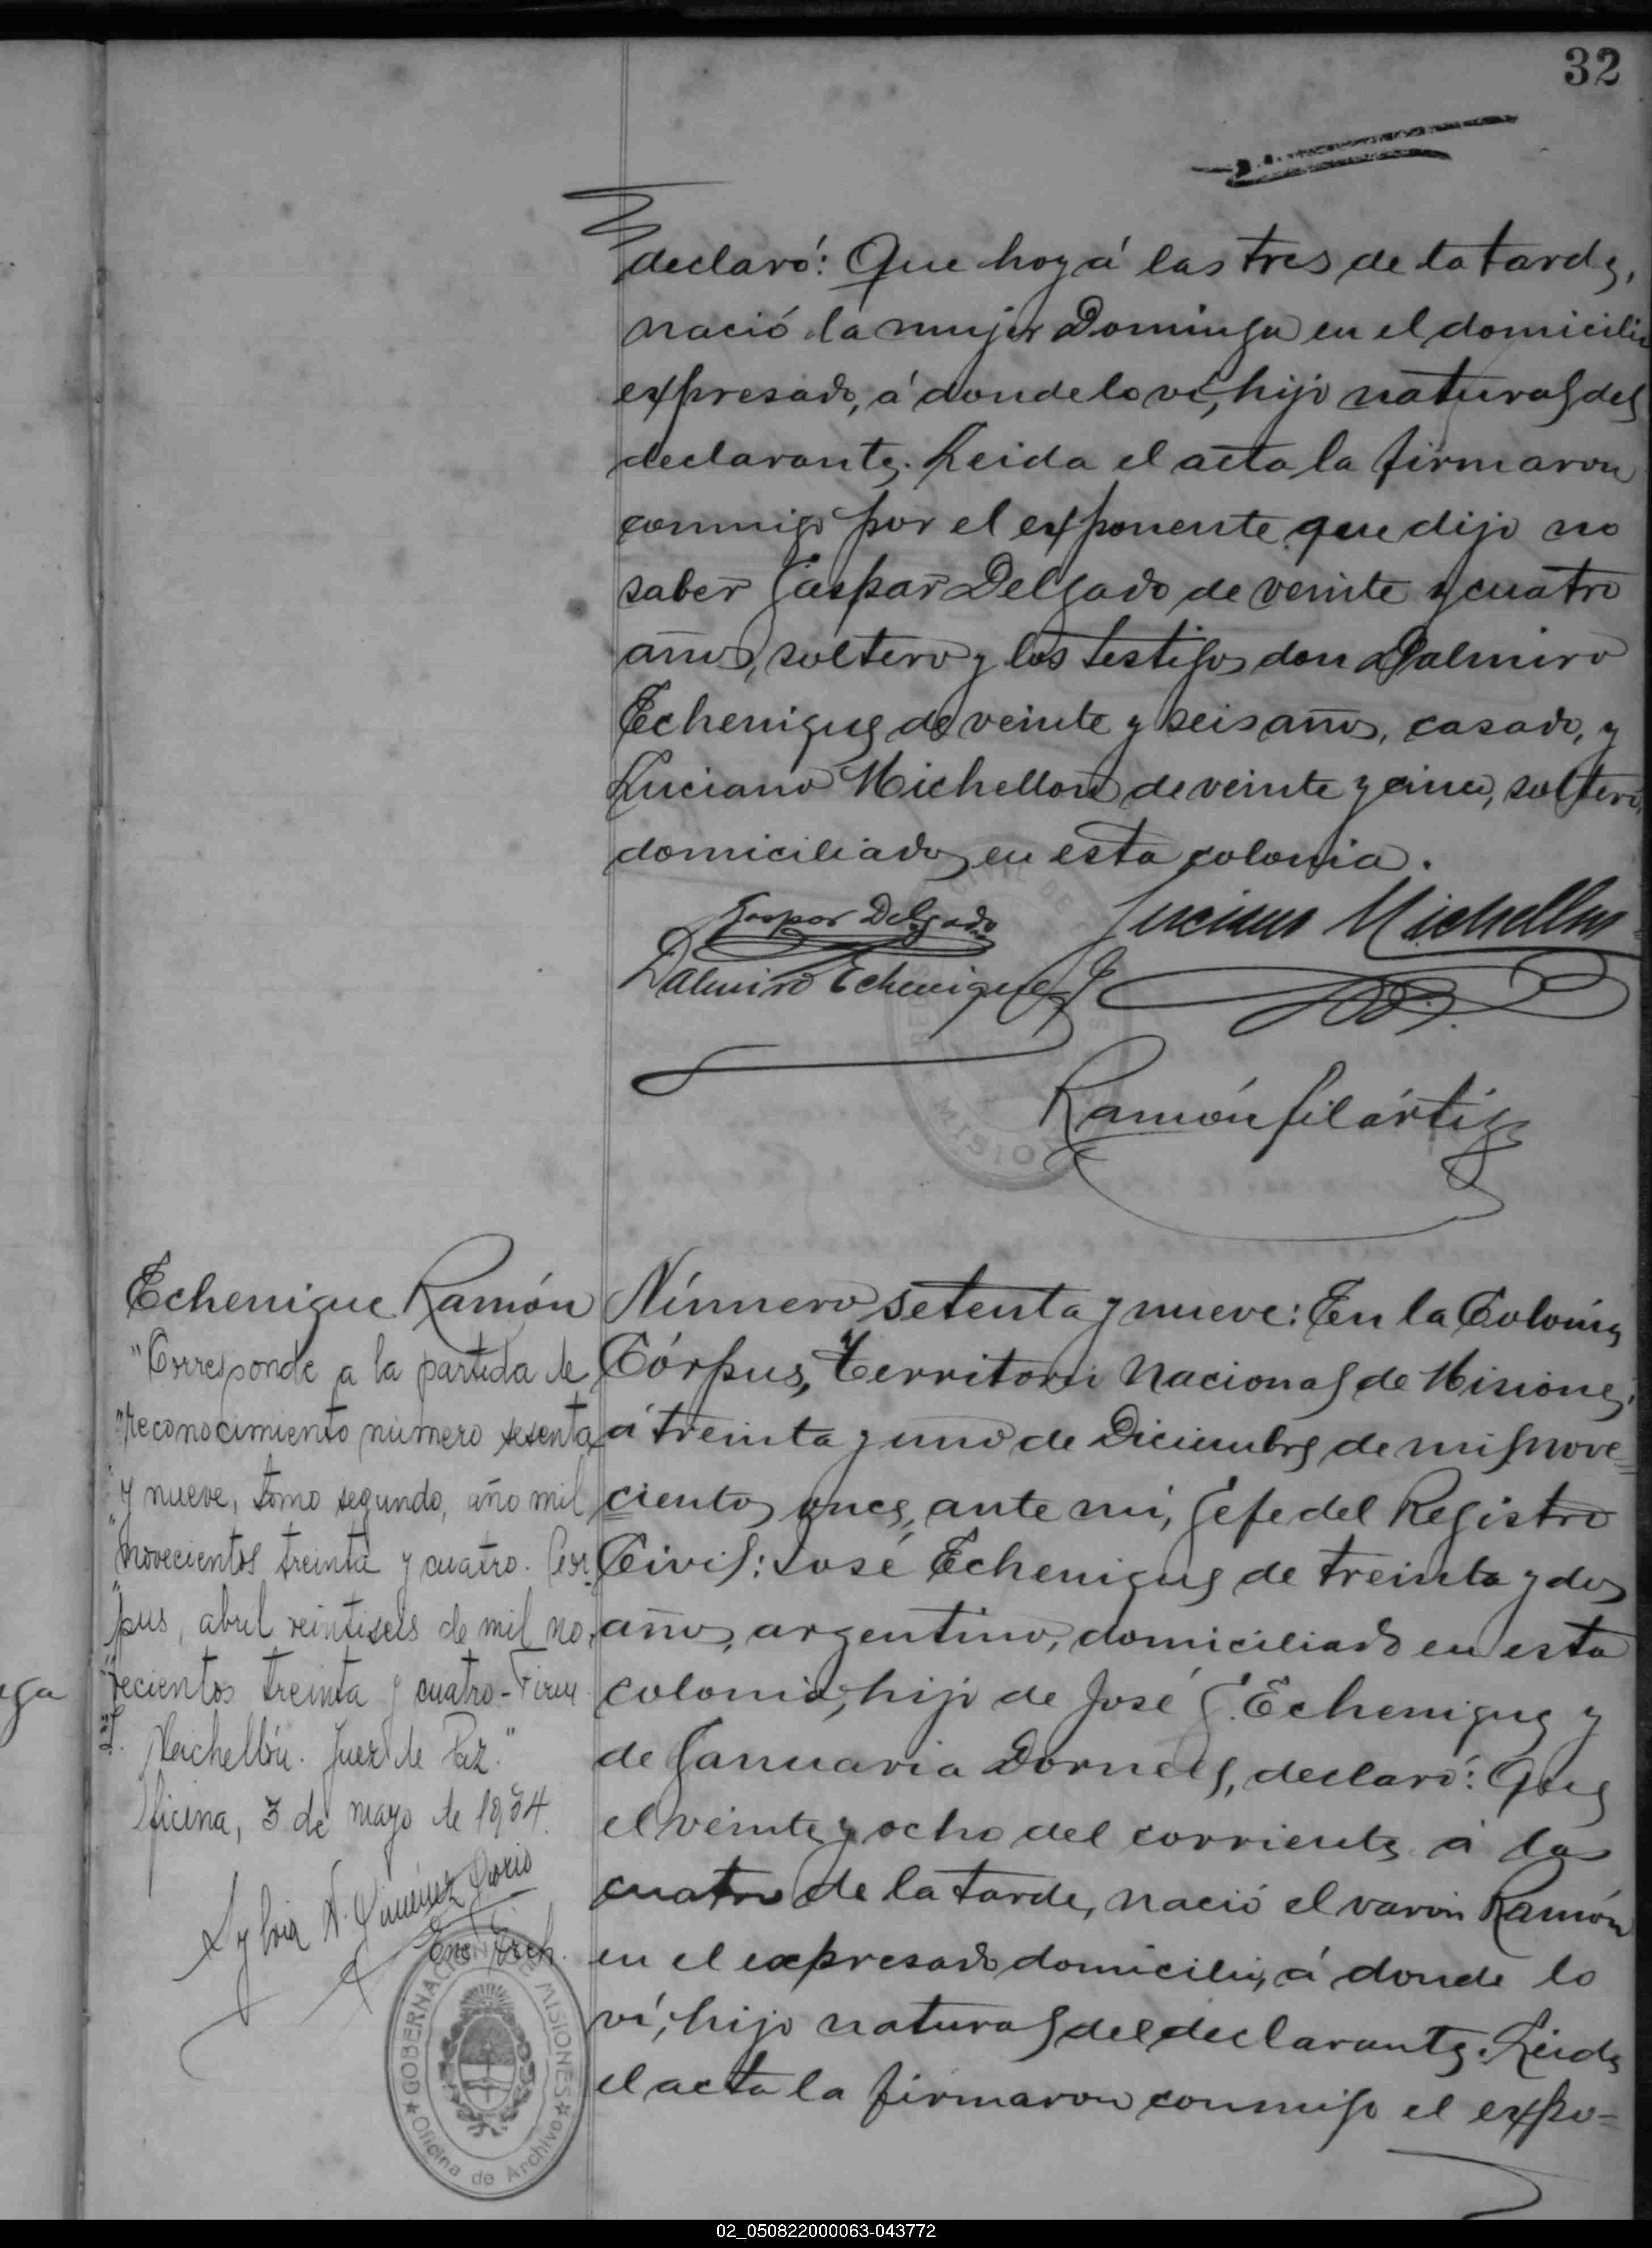 32
declaró: Que hoy á las tres de la tarde,
nació la mujer Dominga en el domicilio
expresado, á donde lo ví, hijo natural del
declarante. Leida el acta la firmaron
conmigo por el exponente que dijo no
saber Gaspar Delgado de veinte y cuatro
años, soltero y los testigos don Dalmiro
Echenique de veinte y seis años, casado, y
Luciano Michellon de veinte y cinco, soltero,
domiciliados en esta colonia.
Gaspar Delgado
Luciano Michellon
Dalmiro Echenique
Ramón Filártiga
MISIO
Echenique Ramón
"Corresponde a la partida de
"reconocimiento número sesenta
"y nueve, tomo segundo, año mil
"novecientos treinta y cuatro. Cor-
"pus, abril veintiseis de mil no-
vecientos treinta y cuatro-Firm
L. Michellón. Juez de Paz."
Oficina, 3 de mayo de 1934.
Enc. Arch.
GOBERNACION DE MISIONES
Oficina de Archivo
Número setenta y nueve: En la Colonia
Córpus, Territorio Nacional de Misiones,
á treinta y uno de Diciembre de mil nove=
cientos once, ante mí, Gefe del Registro
Civil: José Echenique de treinta y dos
años, argentino, domiciliado en esta
colonia, hijo de José G. Echenique y
de Januaria Dornels, declaró: Que
el veinte y ocho del corriente á las
cuatro de la tarde, nació el varón Ramón
en el expresado domicilio, á donde lo
ví, hijo natural del declarante. Leida
el acta la firmaron conmigo el expo=
ga
02_050822000063-043772